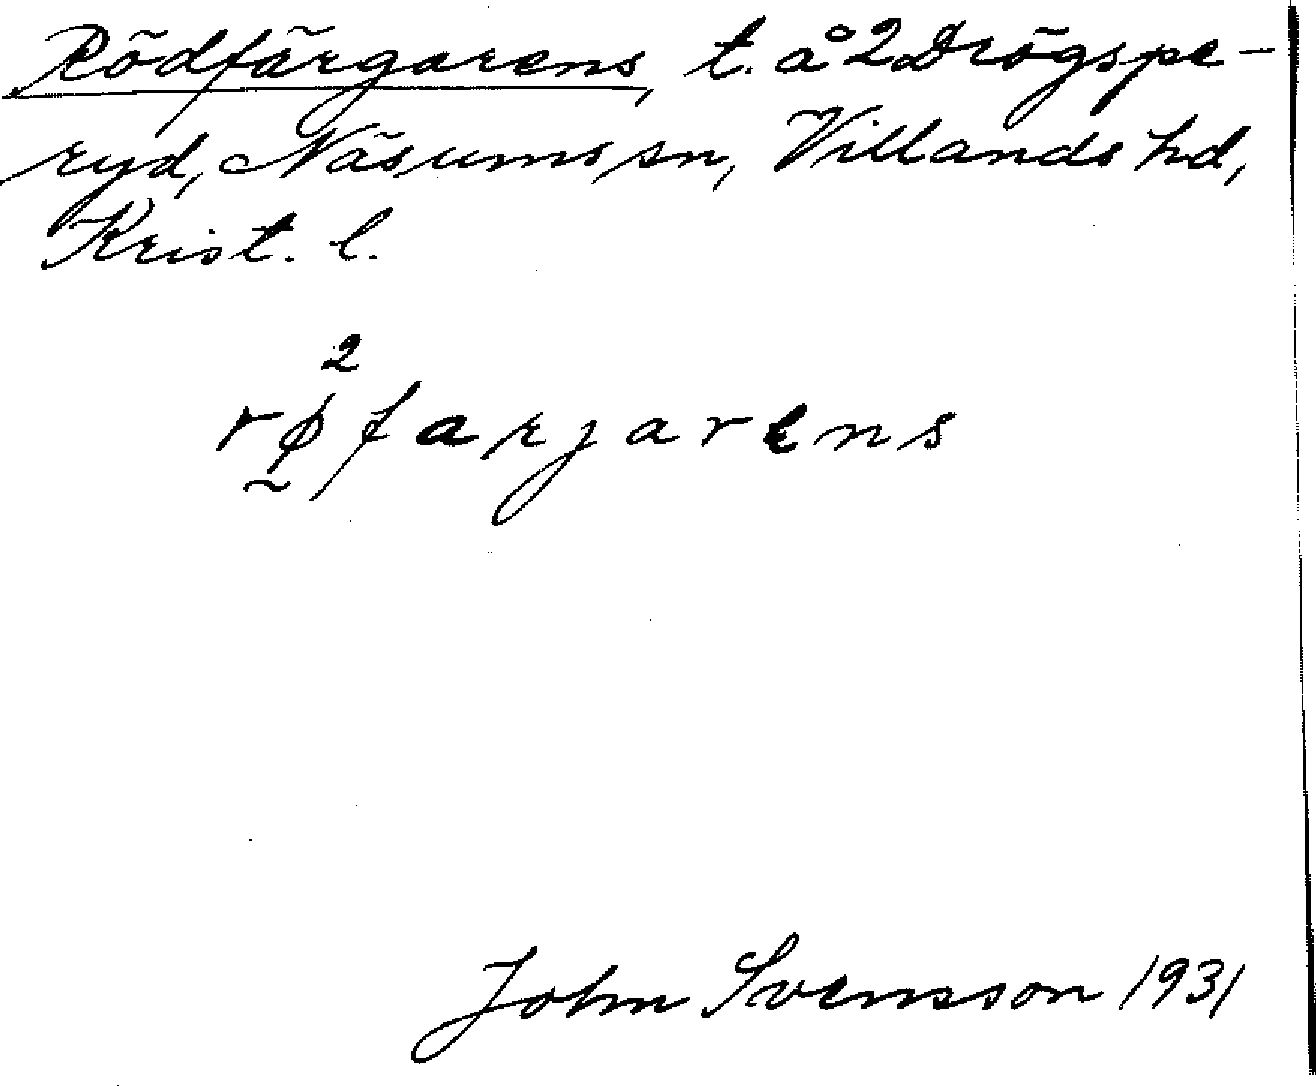 Rödfärgarens, t. å 2 Drögspe-
ryd, Näsums sn, Villands hd,
Krist. l.
2
rø̰farjarens
John Svensson 1931